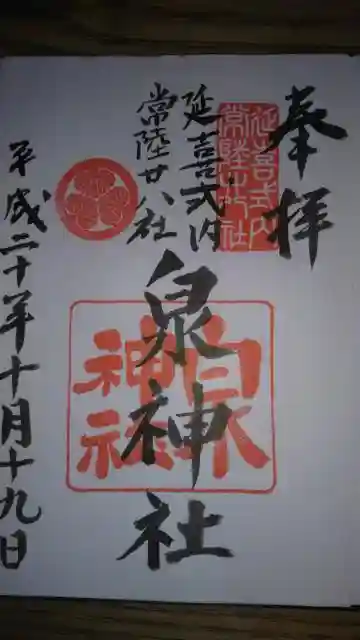 奉拝
延喜式内
常陸廿八社
延喜式内
常陸廿八社
泉神社
泉
神社
平成二十年十月十九日